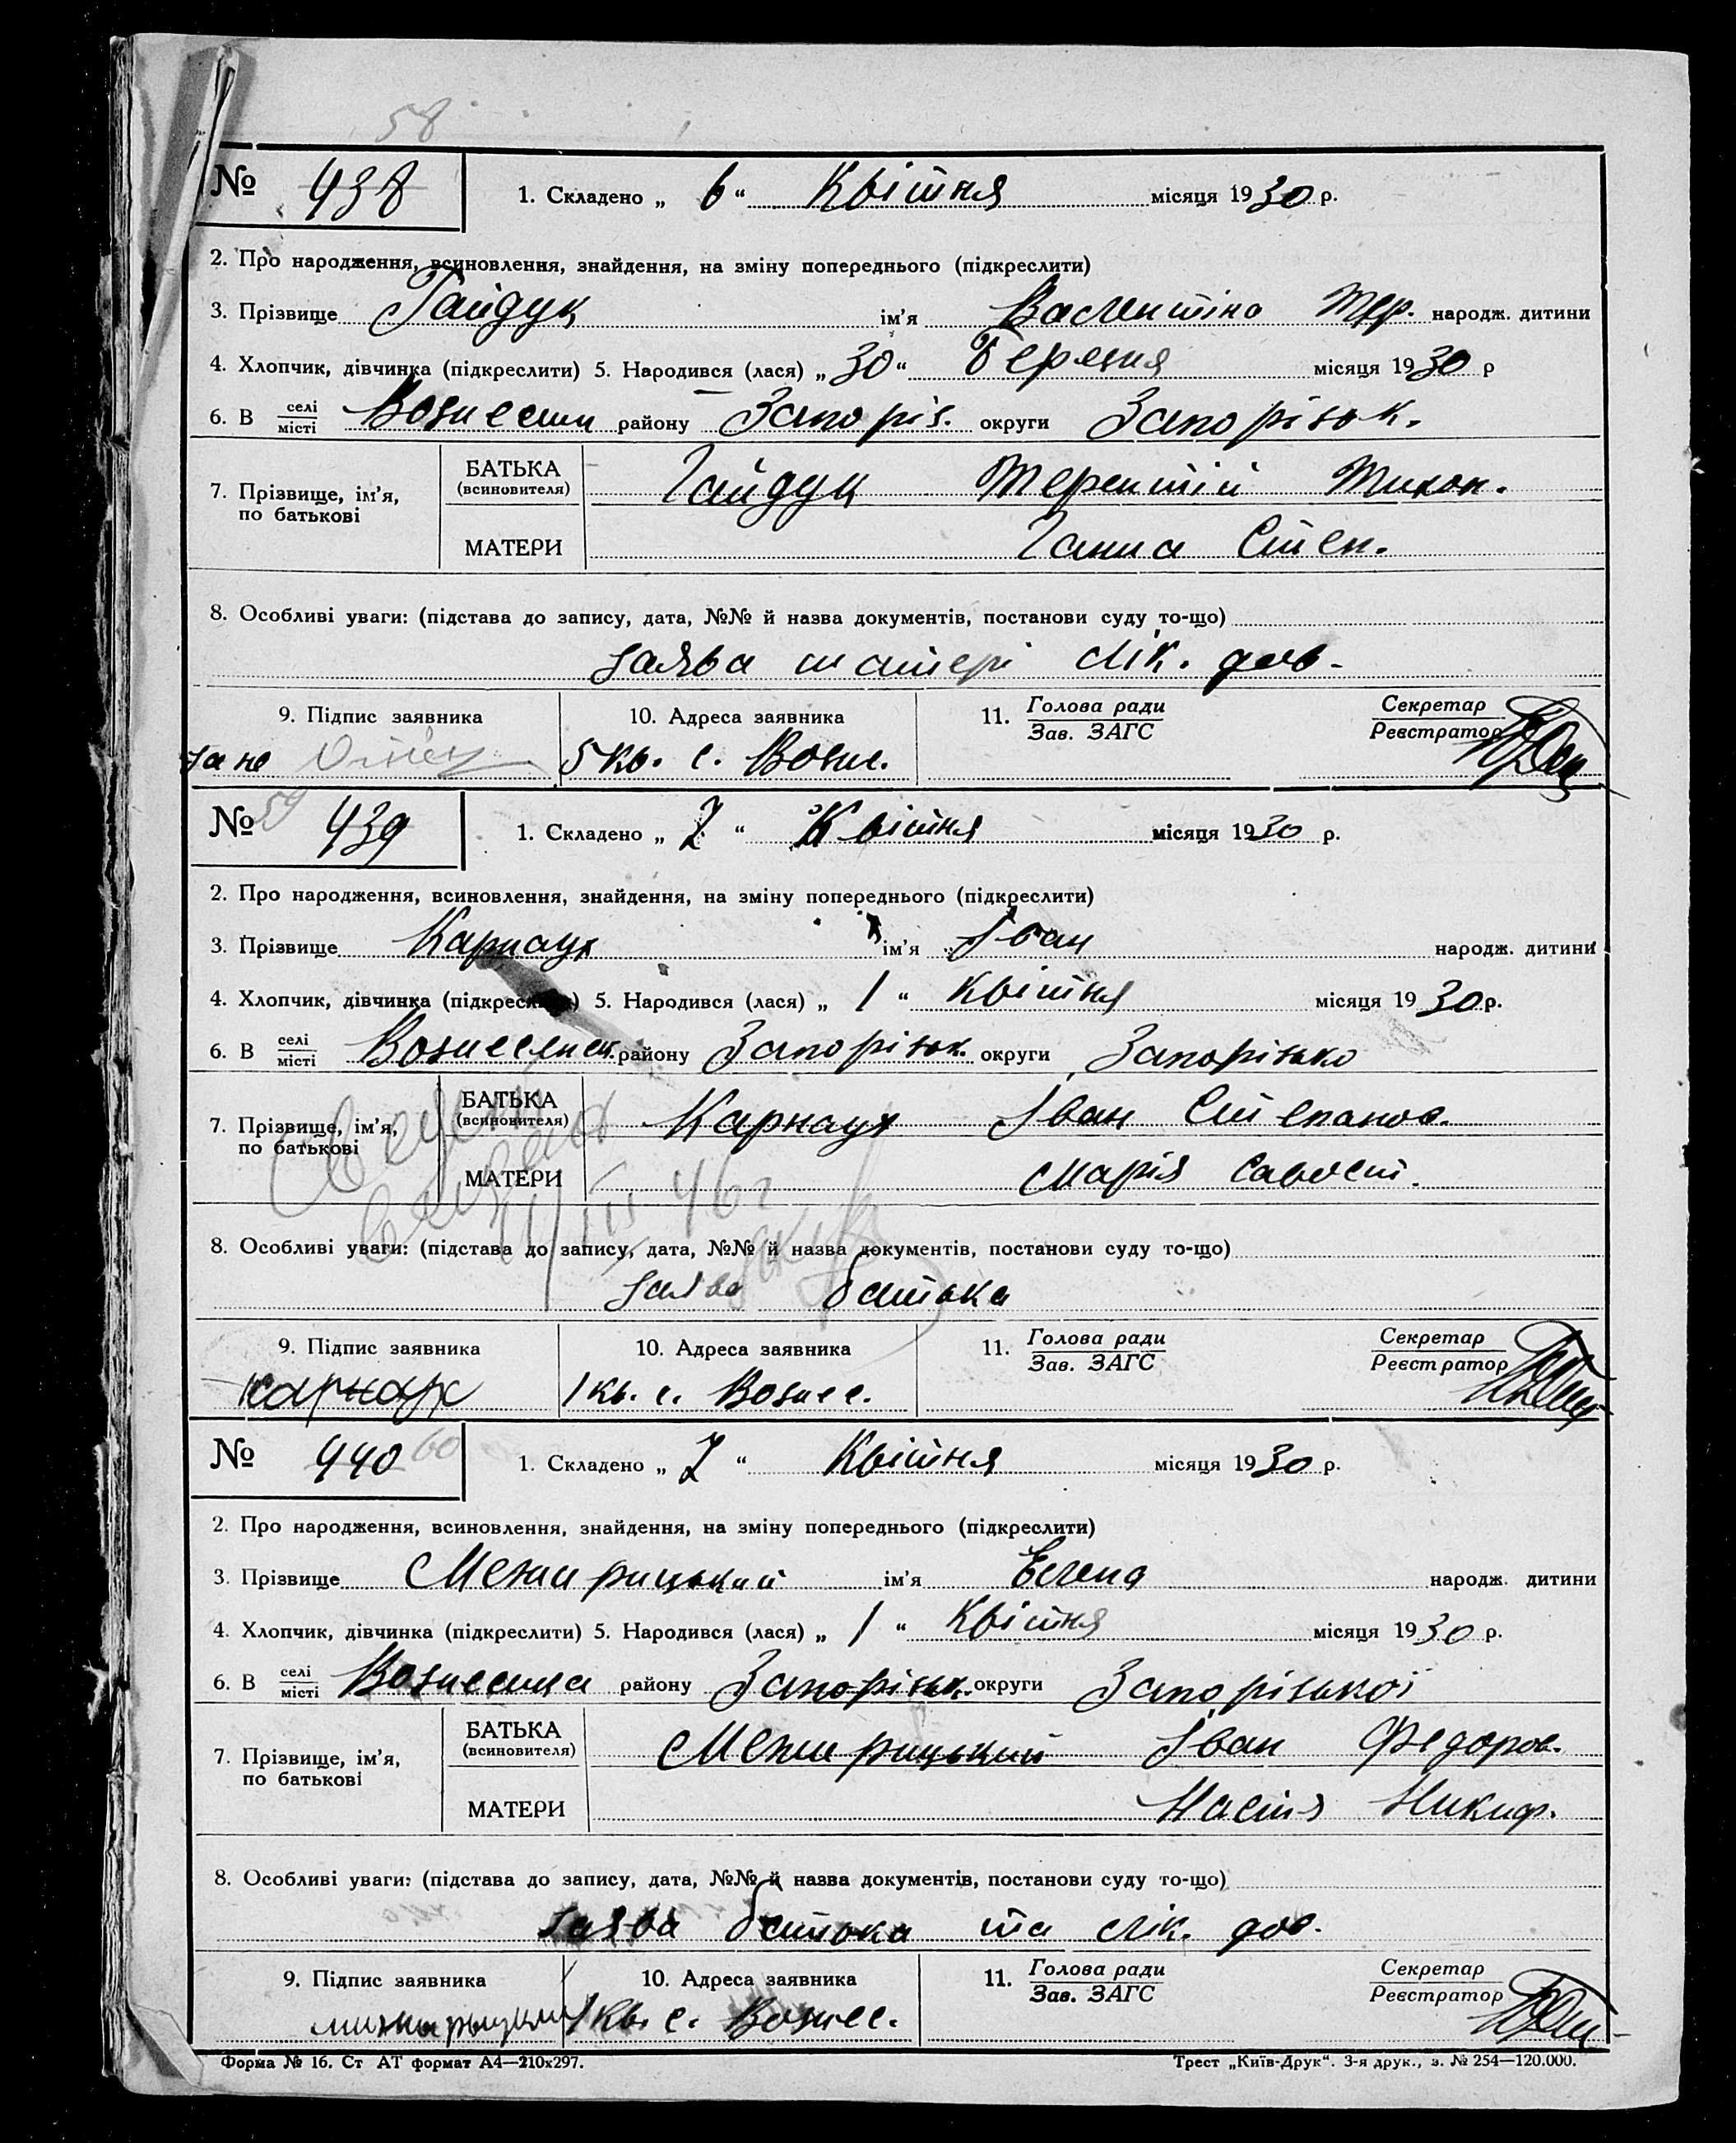 58
№ 438 1. Складено „ 6 “ Квітня місяця 1930 р.
2. Про народження, всиновлення, знайдення, на зміну попереднього (підкреслити)
3. Прізвище Гайдук ім’я Валентіна Тер. народж. дитини
4. Хлопчик, дівчинка (підкреслити) 5. Народився (лася) „ 30 “ Березня місяця 1930 р
6. В селі/місті Вознесенц району Запоріз. округи Запорізьк.
7. Прізвище, ім’я, по батькові БАТЬКА (всиновителя) Гайдук Терентій Тихон.
МАТЕРИ Ганна Степ.
8. Особливі уваги: (підстава до запису, дата, №№ й назва документів, постанови суду то-що)
заява матері лік. дов.
9. Підпис заявника 10. Адреса заявника 11. Голова ради/Зав. ЗАГС Секретар/Реєстратор
5 кв. с. Возн.
59
№ 439 1. Складено „ 7 “ Квітня місяця 1930 р.
2. Про народження, всиновлення, знайдення, на зміну попереднього (підкреслити)
3. Прізвище Карнаух ім’я Іван народж. дитини
4. Хлопчик, дівчинка (підкреслити) 5. Народився (лася) „ 1 “ Квітня місяця 1930 р.
6. В селі/місті Вознесенськ. району Запорізьк. округи Запорізько
7. Прізвище, ім’я, по батькові БАТЬКА (всиновителя) Карнаух Іван Степанов.
МАТЕРИ Марія Савост.
8. Особливі уваги: (підстава до запису, дата, №№ й назва документів, постанови суду то-що)
заява батька
9. Підпис заявника 10. Адреса заявника 11. Голова ради/Зав. ЗАГС Секретар/Реєстратор
карнаух 1 кв. с. Вознес.
№ 440 60 1. Складено „ 7 “ Квітня місяця 1930 р.
2. Про народження, всиновлення, знайдення, на зміну попереднього (підкреслити)
3. Прізвище Межирицький ім’я Єлена народж. дитини
4. Хлопчик, дівчинка (підкреслити) 5. Народився (лася) „ 1 “ Квітня місяця 1930 р.
6. В селі/місті району Запорізьк. округи Запорізької
7. Прізвище, ім’я, по батькові БАТЬКА (всиновителя) Межирицький Іван Федоров.
МАТЕРИ Настя Никиф.
8. Особливі уваги: (підстава до запису, дата, №№ й назва документів, постанови суду то-що)
заява батька та лік. дов.
9. Підпис заявника 10. Адреса заявника 11. Голова ради/Зав. ЗАГС Секретар/Реєстратор
1 кв. с. Вознес.
Форма № 16. Ст АТ формат А4—210х297. Трест „Київ-Друк“. 3-я друк., з. № 254—120.000.